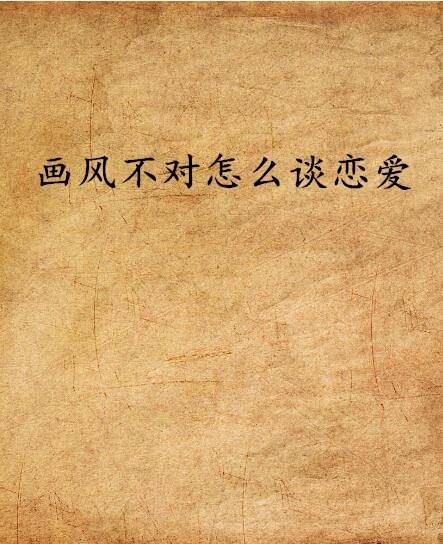 画风不对怎么谈恋爱